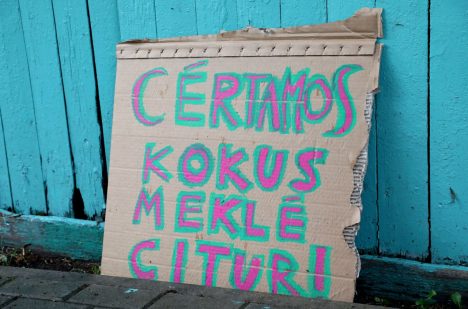 CĒRTAMOS
KOKUS
MEKLĒ
CITUR!